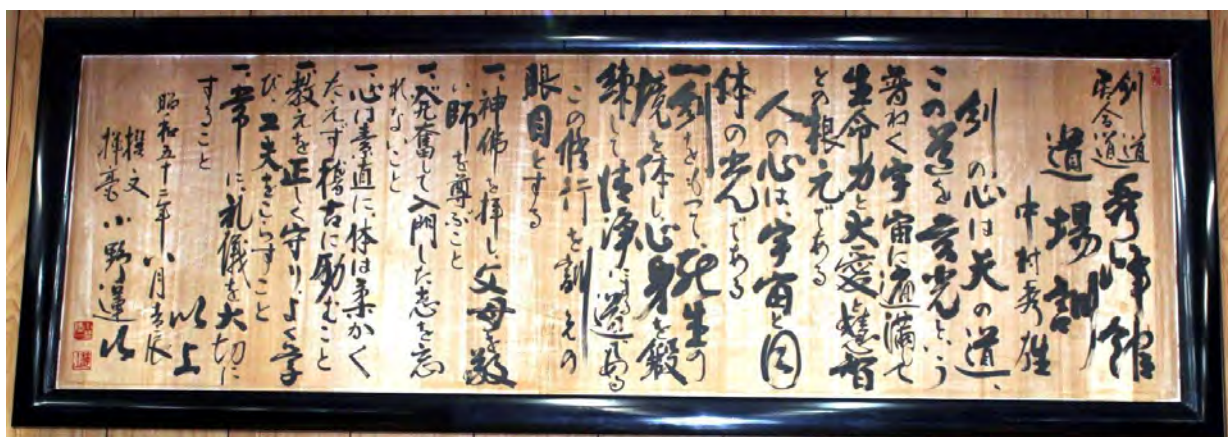 剣道
居合道
秀峰館
道場訓
中村秀雄
剣の心は天の道、
この道を玄光という
普ねく宇宙に遍満せ
生命力と大愛と慧智
との根元である
人の心は、宇宙と同
体の光である
一剣をもって、死生の
境を体し、心身を鍛
練して清浄に
この修行を訓えの
眼目とする
一、神佛を拝し、父母を敬
い、師を尊ぶこと
一、発奮して入門した志を忘
れないこと
一、心は素直に、体は柔かく
たえず稽古に励むこと
一、教えを正しく守り、よく学
び、工夫をこらすこと
一、常に礼儀を大切に
すること
以上
昭和五十二年八月吉辰
撰文
揮毫 小野